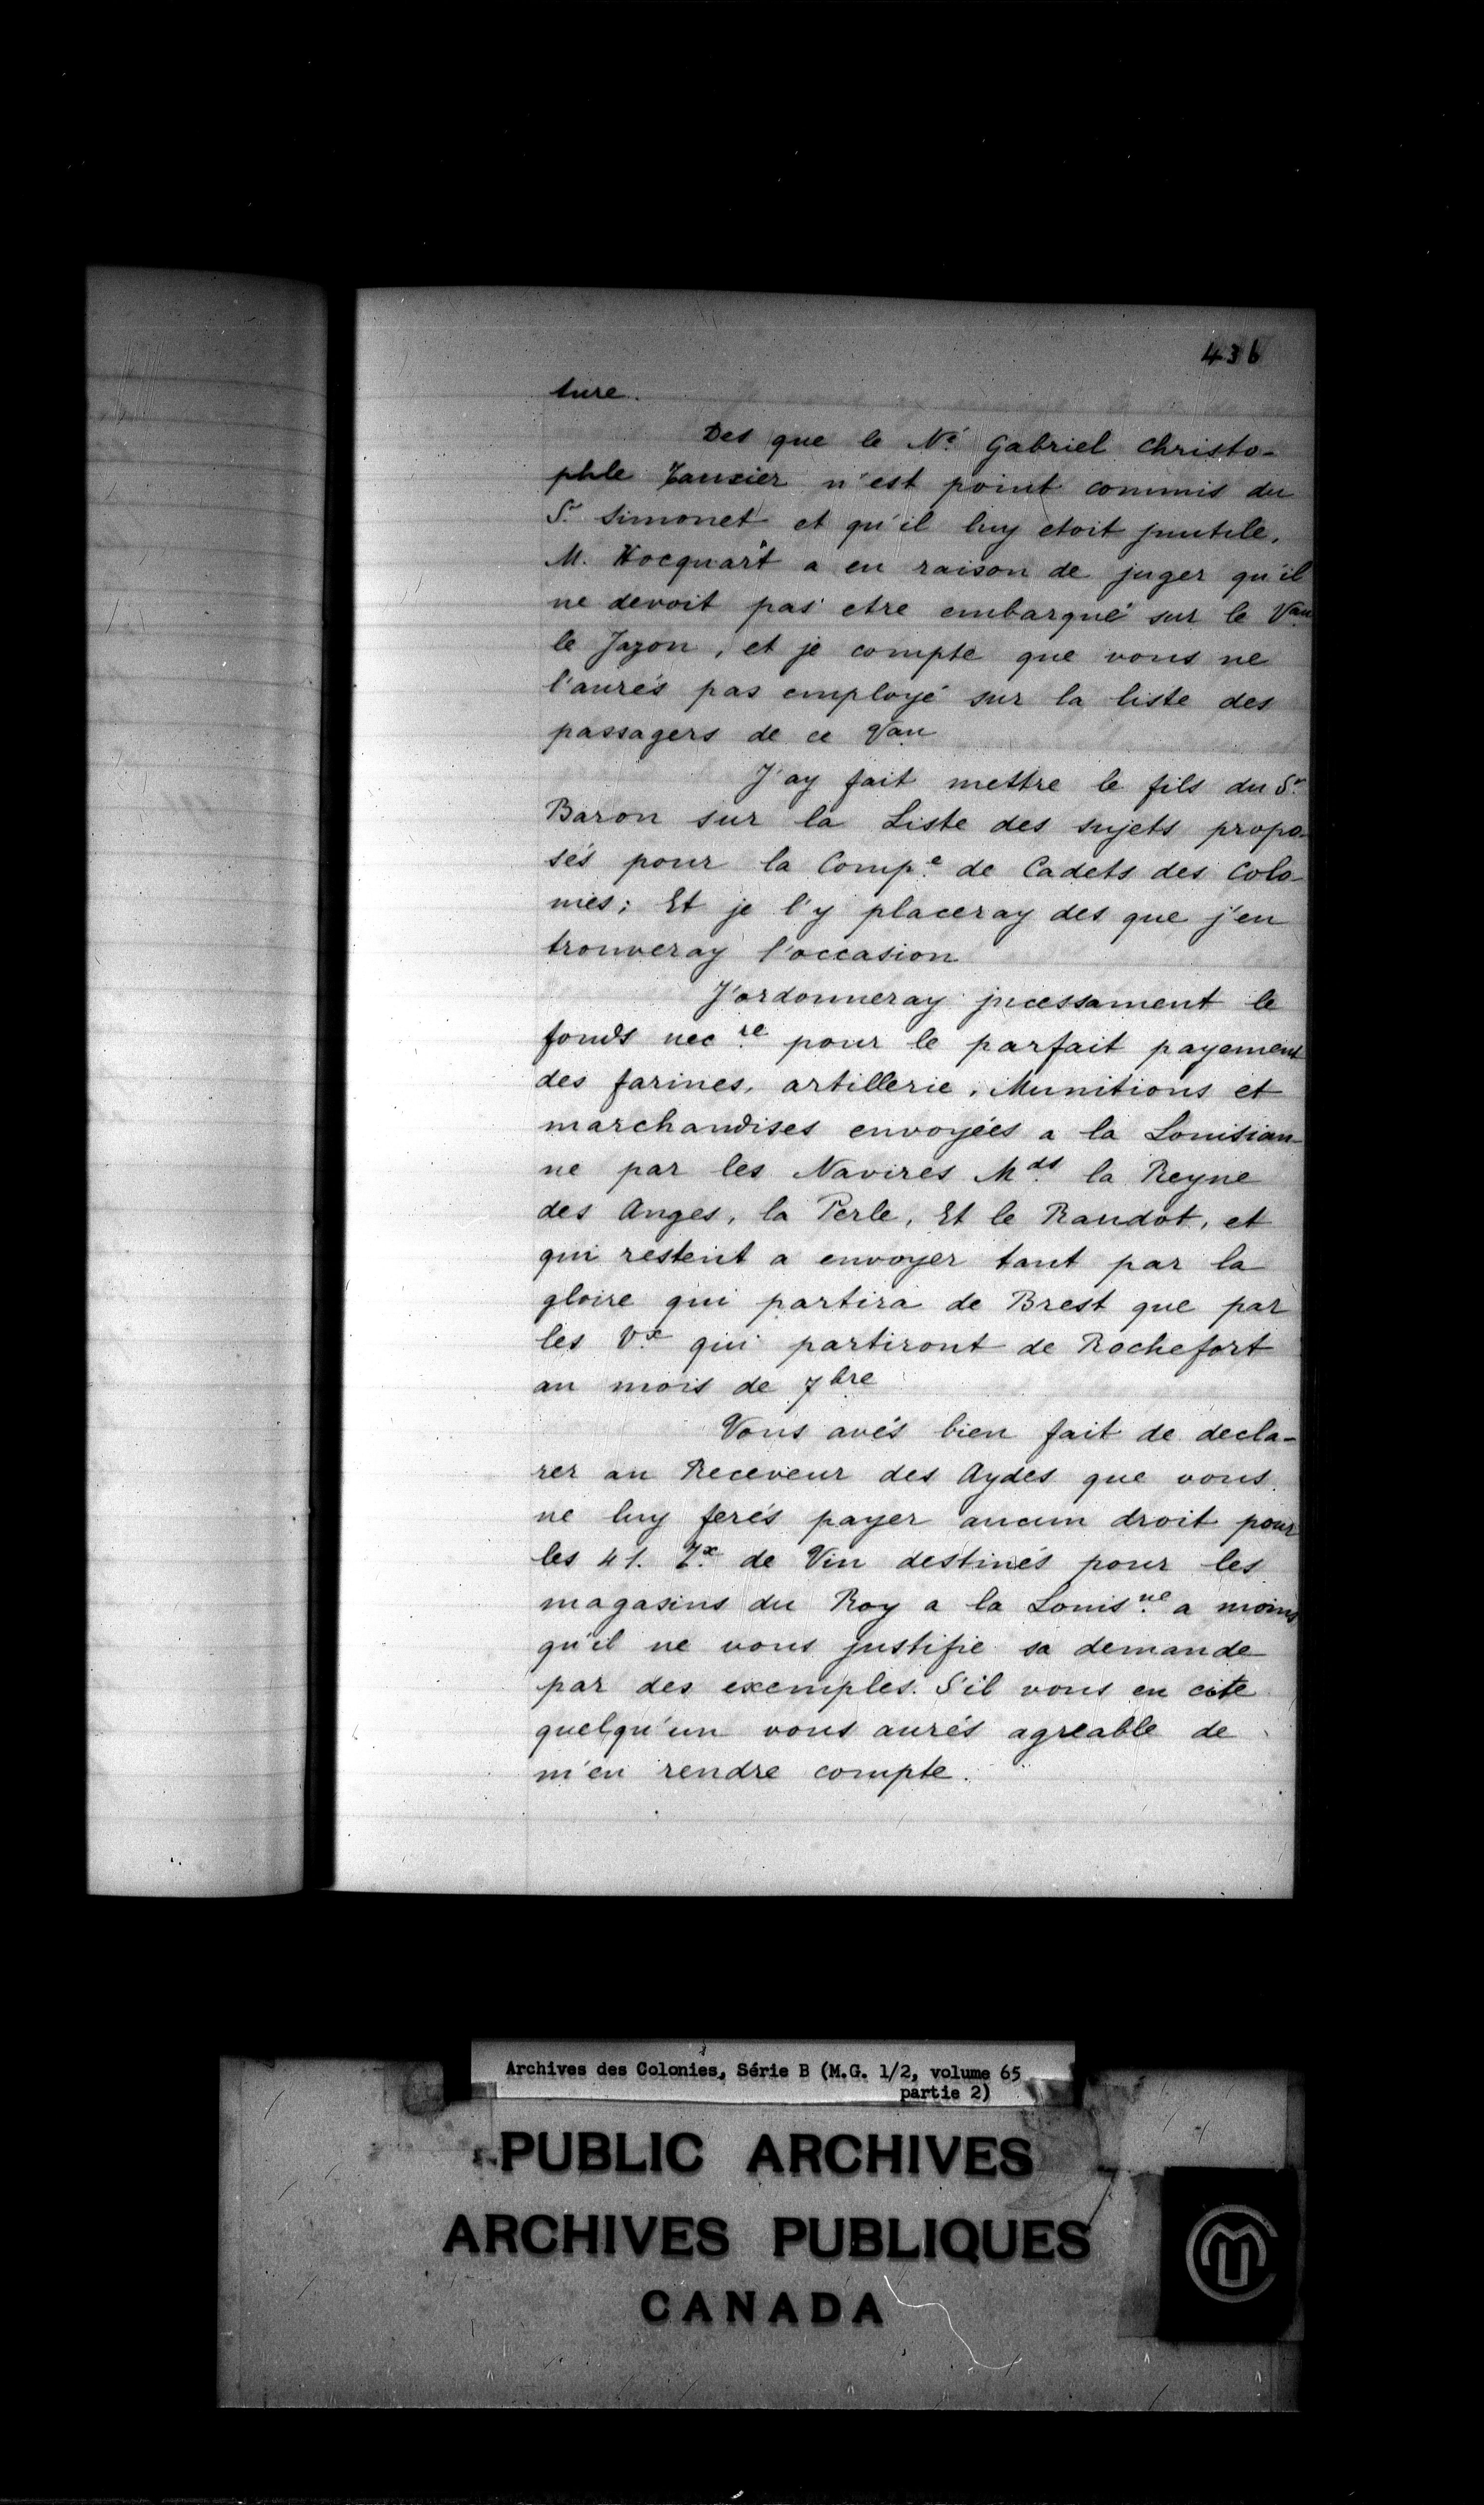 436
ture.
Des que le Né Gabriel Christo-
phle Tauxier n'est point commis du
Sr. Simonet et qu'il luy etoit jnutile,
M. Hocquart a eu raison de juger qu'il
ne devoit pas etre embarqué sur le Vau
le Jazon, et je compte que vous ne
l'aurés pas employé sur la liste des
passagers de ce Vau
J'ay fait mettre le fils du Sr.
Baron sur la Liste des sujets propo-
sés pour la Compe. de Cadets des Colo-
nies; Et je l'y placeray des que j'en
trouveray l'occasion
J'ordonneray jncessament le
fonds necre. pour le parfait payement
des farines, artillerie, Munitions et
marchandises envoyées a la Louisian-
ne par les Navires Mds. la Reyne
des Anges, la Perle, Et le Raudot, et
qui restent a envoyer tant par la
gloire qui partira de Brest que par
les Vx. qui partiront de Rochefort
au mois de 7bre
Vous avés bien fait de decla-
rer au Receveur des Aydes que vous
ne luy ferés payer aucun droit pour
les 41. Tx. de Vin destinés pour les
magasins du Roy a la Louisne. a moins
qu'il ne vous justifie sa demande
par des exemples. S'il vous en cite
quelqu'un vous aurés agreable de
m'en rendre compte.
Archives des Colonies, Série B (M.G. 1/2, volume 65
partie 2)
PUBLIC ARCHIVES
ARCHIVES PUBLIQUES
CANADA